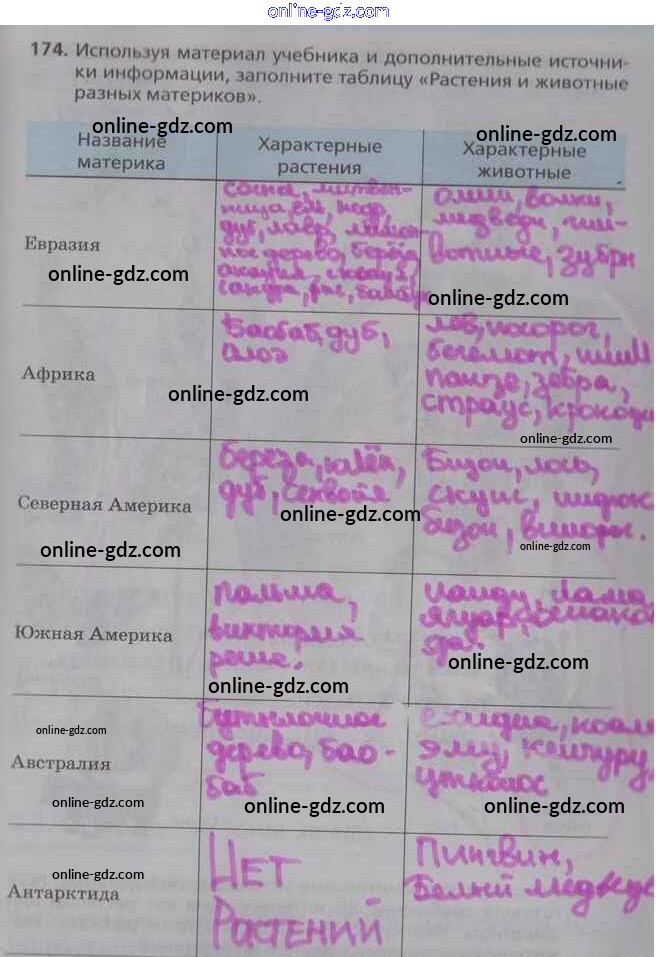 online-gdz.com
174. Используя материал учебника и дополнительные источни-
ки информации, заполните таблицу «Растения и животные
разных материков».
online-gdz.com
online-gdz.com
Название
материка
Характерные
растения
Характерные
животные
Евразия
online-gdz.com
сосна, листвен-
ница, ель, кедр,
дуб, лавр, лимон-
ное дерево, берёза,
акация,
сакура, рис, бамбук
олени, волки,
медведи,
вотные, зубры
online-gdz.com
Африка
Баобаб, дуб,
алоэ
online-gdz.com
лев, носорог,
бегемот, шим
панзе, зебра,
страус, крокоди
online-gdz.com
Северная Америка
online-gdz.com
береза, клён,
дуб, секвойя
online-gdz.com
Бизон, лось,
скунс,
бизон,
online-gdz.com
Южная Америка
пальма,
виктория
online-gdz.com
нанду, лама
ягуар,
да.
online-gdz.com
online-gdz.com
Австралия
online-gdz.com
Бутылочное
дерево, бао-
баб
online-gdz.com
ехидна, коал
эму, кенгуру,
утконос
online-gdz.com
online-gdz.com
Антарктида
НЕТ
РАСТЕНИЙ
Пингвин,
Белый медведь